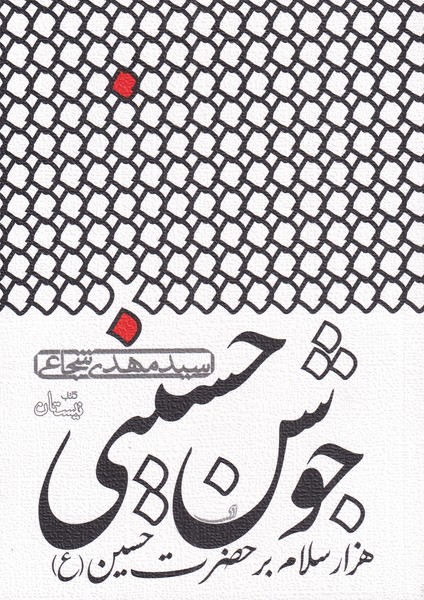 سید مهدی شجاعی
کتاب
نیستان
جوشن حسینی
هزار سلام بر حضرت حسین (ع)